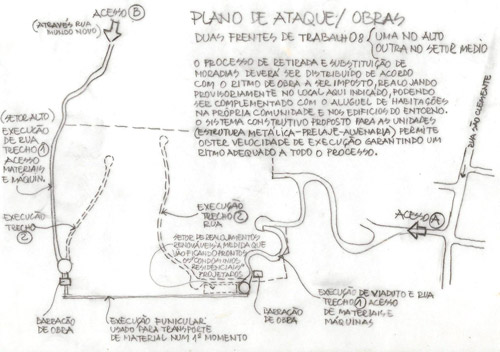 ACESSO B
(ATRAVÉS RUA
MUNDO NOVO)
PLANO DE ATAQUE/ OBRAS
DUAS FRENTES DE TRABALHO
UMA NO ALTO
OUTRA NO SETOR MEDIO
O PROCESSO DE RETIRADA E SUBSTITUIÇÃO DE
MORADIAS DEVERÁ SER DISTRIBUÍDO DE ACORDO
COM O RITMO DE OBRA A SER IMPOSTO, REALOJANDO
PROVISORIAMENTE NO LOCAL AQUI INDICADO, PODENDO
SER COMPLEMENTADO COM O ALUGUEL DE HABITAÇÕES
NA PRÓPRIA COMUNIDADE E NOS EDIFÍCIOS DO ENTORNO.
O SISTEMA CONSTRUTIVO PROPOSTO PARA AS UNIDADES
(ESTRUTURA METÁLICA-PRELAJE-ALVENARIA) PERMITE
OBTER VELOCIDADE DE EXECUÇÃO GARANTINDO UM
RITMO ADEQUADO A TODO O PROCESSO.
RUA SÃO CLEMENTE
(SETOR ALTO)
EXECUÇÃO
DE RUA
TRECHO 1
ACESSO
MATERIAIS
E MAQUIN.
EXECUÇÃO
TRECHO
2
EXECUÇÃO
TRECHO 2
RUA
ACESSO A
SETOR DE REALOJAMENTOS
RENOVÁVEIS A MEDIDA QUE
VÃO FICANDO PRONTOS
OS CONDOMINIOS
RESIDENCIAIS
PROJETADOS
BARRAÇÃO
DE OBRA
EXECUÇÃO FUNICULAR
USADO PARA TRANSPORTE
DE MATERIAL NUM 1º MOMENTO
BARRAÇÃO
DE OBRA
EXECUÇÃO DE VIADUTO E RUA
TRECHO 1 ACESSO
DE MATERIAIS E
MÁQUINAS